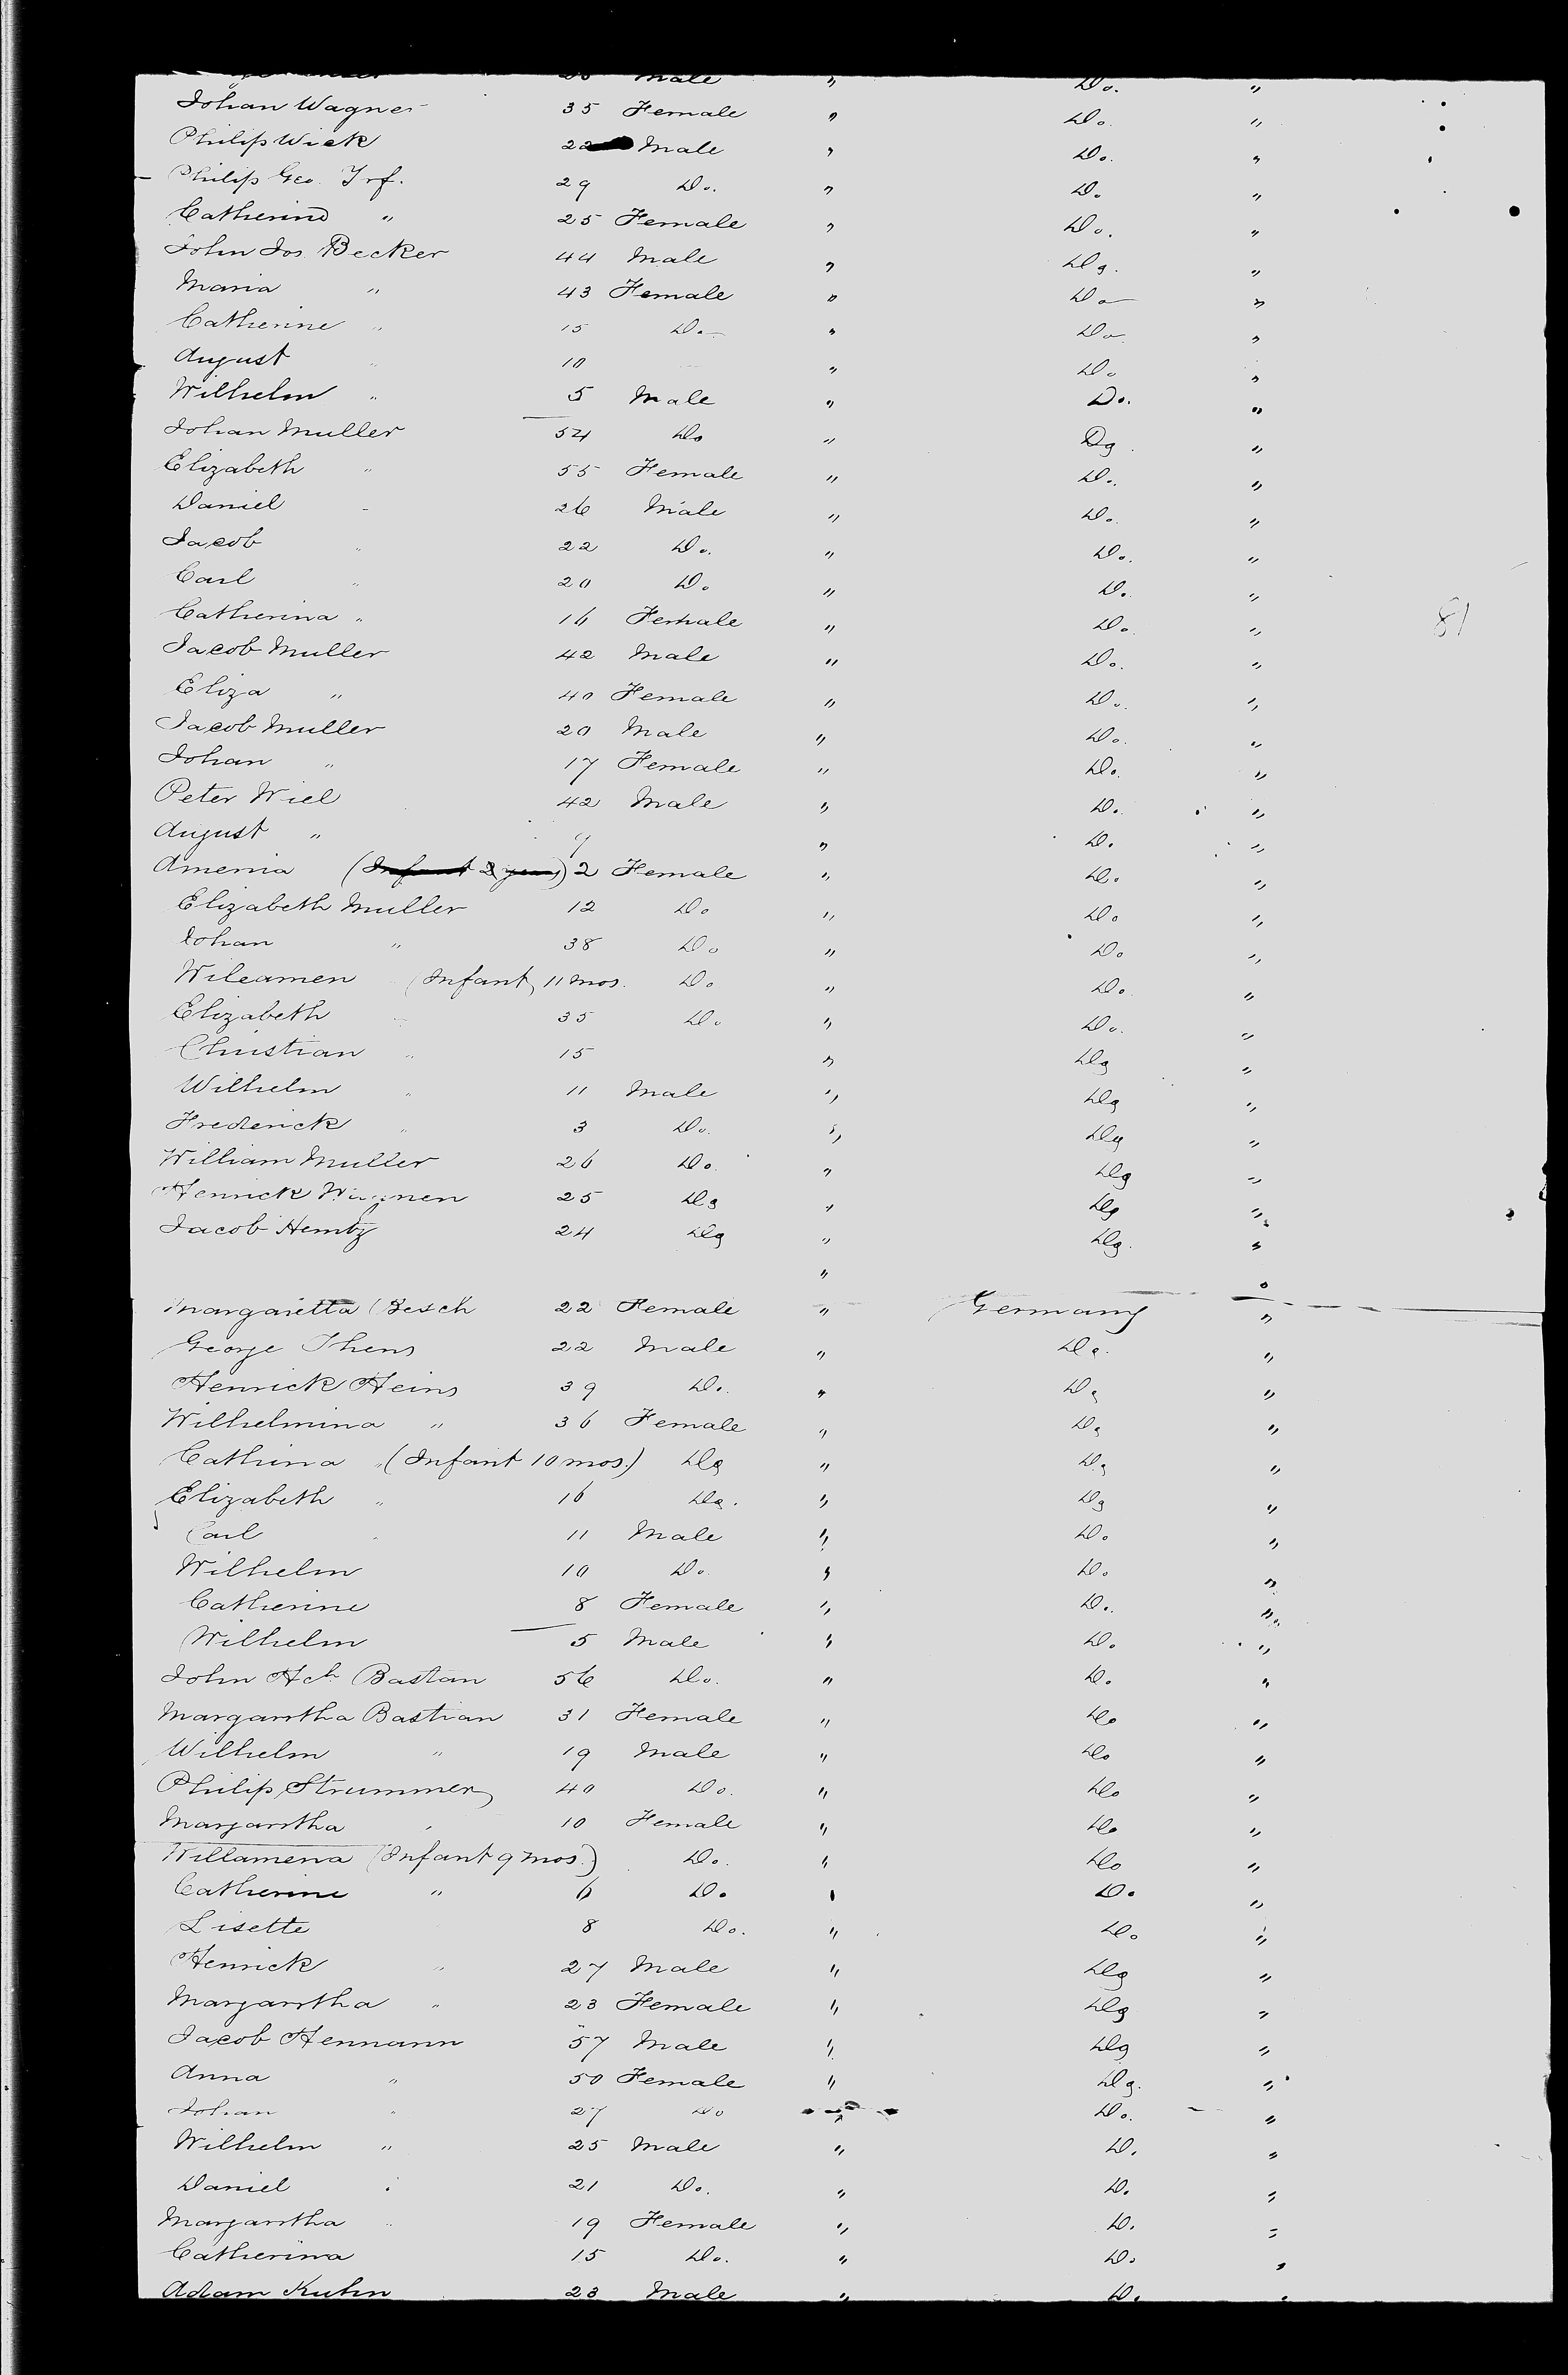 Male " Do. "
Johan Wagner 35 Female " Do. "
Philip Wick 22 Male " Do. "
Philip Geo. Yrf. 29 Do. " Do. "
Catherine " 25 Female " Do. "
John Jos. Becker 44 Male " Do. "
Maria " 43 Female " Do "
Catherine " 15 Do. " Do "
August " 10 " Do "
Wilhelm " 5 Male " Do. "
Johan Muller 54 Do " Do. "
Elizabeth " 55 Female " Do. "
Daniel " 26 Male " Do. "
Jacob " 22 Do. " Do. "
Carl " 20 Do. " Do. "
Catherina " 16 Female " Do. " 81
Jacob Muller 42 Male " Do. "
Eliza " 40 Female " Do. "
Jacob Muller 20 Male " Do. "
Johan " 17 Female " Do. "
Peter Wiel 42 Male " Do. "
August " 9 " Do. "
Amenia (Infant 2 years) 2 Female " Do. "
Elizabeth Muller 12 Do " Do "
Johan " 38 Do " Do "
Wileamen (Infant, 11 mos. Do " Do. "
Elizabeth " 35 Do " Do. "
Christian " 15 " Do "
Wilhelm " 11 Male " Do "
Frederick " 3 Do. " Do "
William Muller 26 Do. " Do "
Henrick Wagnen 25 Do " Do "
Jacob Hentz 24 Do " Do. "
"
Margaretta Besch 22 Female " Germany "
George Thens 22 Male " Do. "
Henrick Heins 39 Do. " Do "
Wilhelmina " 36 Female " Do "
Cathrina " (Infant 10 mos.) Do " Do "
Elizabeth " 16 Do. " Do "
Carl " 11 Male " Do. "
Wilhelm 10 Do. " Do. "
Catherine 8 Female " Do. "
Wilhelm 5 Male " Do. "
John Hch. Bastan 56 Do. " Do. "
Margarstha Bastian 31 Female " Do "
Wilhelm " 19 Male " Do "
Philip Strummer 40 Do. " Do "
Margarstha " 10 Female " Do "
Willamena (Infant 9 mos.) Do. " Do "
Catherine " 6 Do. " Do. "
Lisette 8 Do. " Do. "
Henrick " 27 Male " Do "
Margarstha " 23 Female " Do "
Jacob Hermann 57 Male " Do "
Anna " 50 Female " Do. "
Johan " 27 Do " Do. "
Wilhelm " 25 Male " Do. "
Daniel " 21 Do. " Do. "
Margarstha " 19 Female " Do. "
Catherina 15 Do. " Do. "
Adam Kuhn 23 Male " Do. "